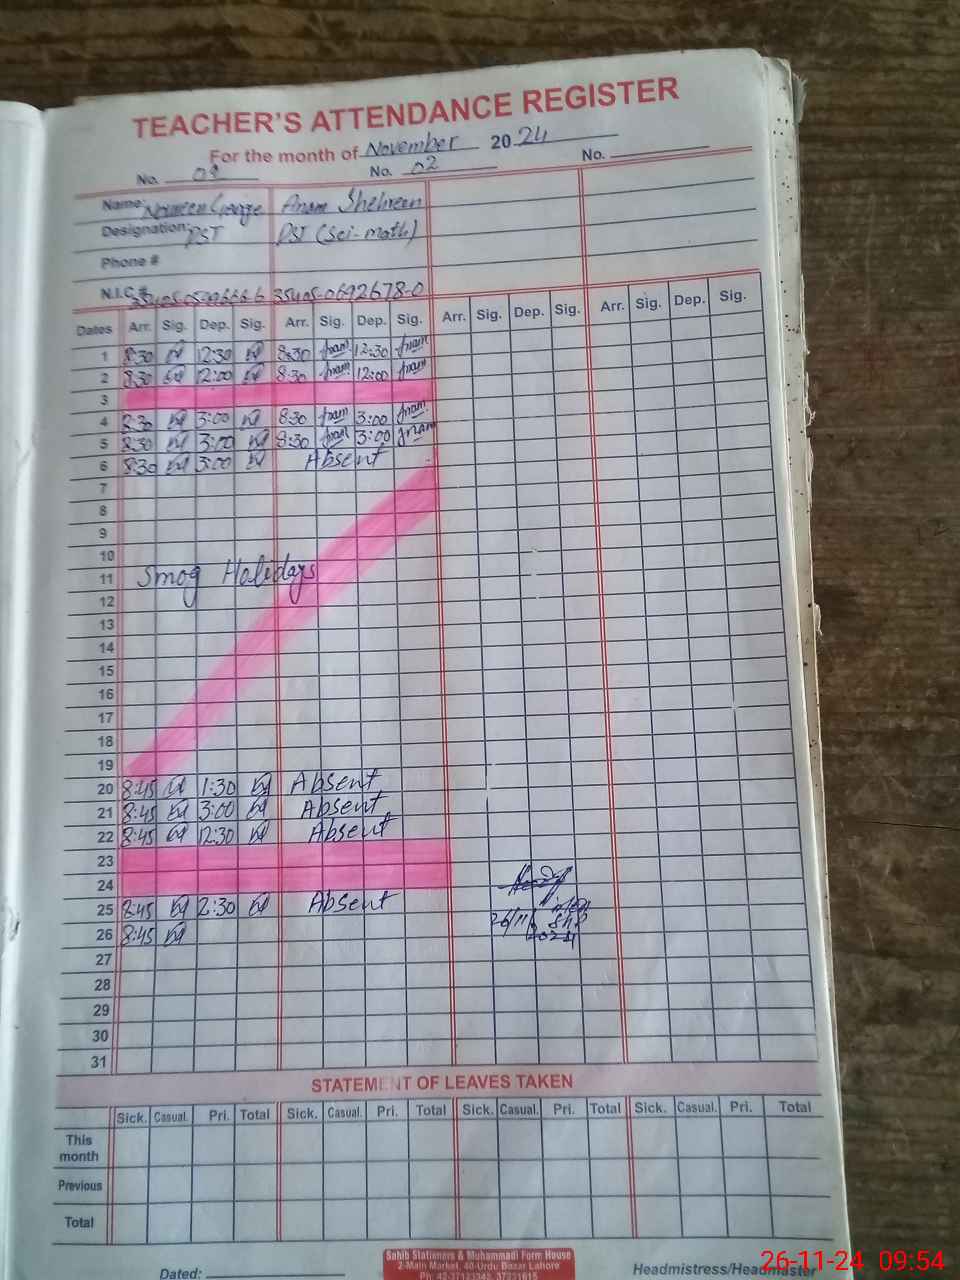 TEACHER'S ATTENDANCE REGISTER
For the month of November 2024
No. No. 02 No.
Name: Anam Shehreen
Designation: PST PST (Sci-math)
Phone #
N.I.C # 35405-0692678-0
Dates Arr. Sig. Dep. Sig. Arr. Sig. Dep. Sig. Arr. Sig. Dep. Sig. Arr. Sig. Dep. Sig.
1 8:30 12:30 8:30 Anam 12:30 Anam
2 8:30 12:00 8:30 Anam 12:00 Anam
3
4 8:30 3:00 8:30 Anam 3:00 Anam
5 8:30 3:00 8:30 Anam 3:00 Anam
6 8:30 3:00 Absent
7
8
9
10
11 Smog Holidays
12
13
14
15
16
17
18
19
20 8:45 1:30 Absent
21 8:45 3:00 Absent
22 8:45 12:30 Absent
23
24
25 8:45 2:30 Absent
26 8:45 26/11/
2024
27
28
29
30
31
STATEMENT OF LEAVES TAKEN
Sick. Casual. Pri. Total Sick. Casual. Pri. Total Sick. Casual. Pri. Total Sick. Casual. Pri. Total
This month
Previous
Total
Sahib Stationers & Muhammadi Form House
2-Main Market, 40-Urdu Bazar Lahore
Ph: 42-37123342, 37231615
Dated: Headmistress/Headmaster
26-11-24 09:54